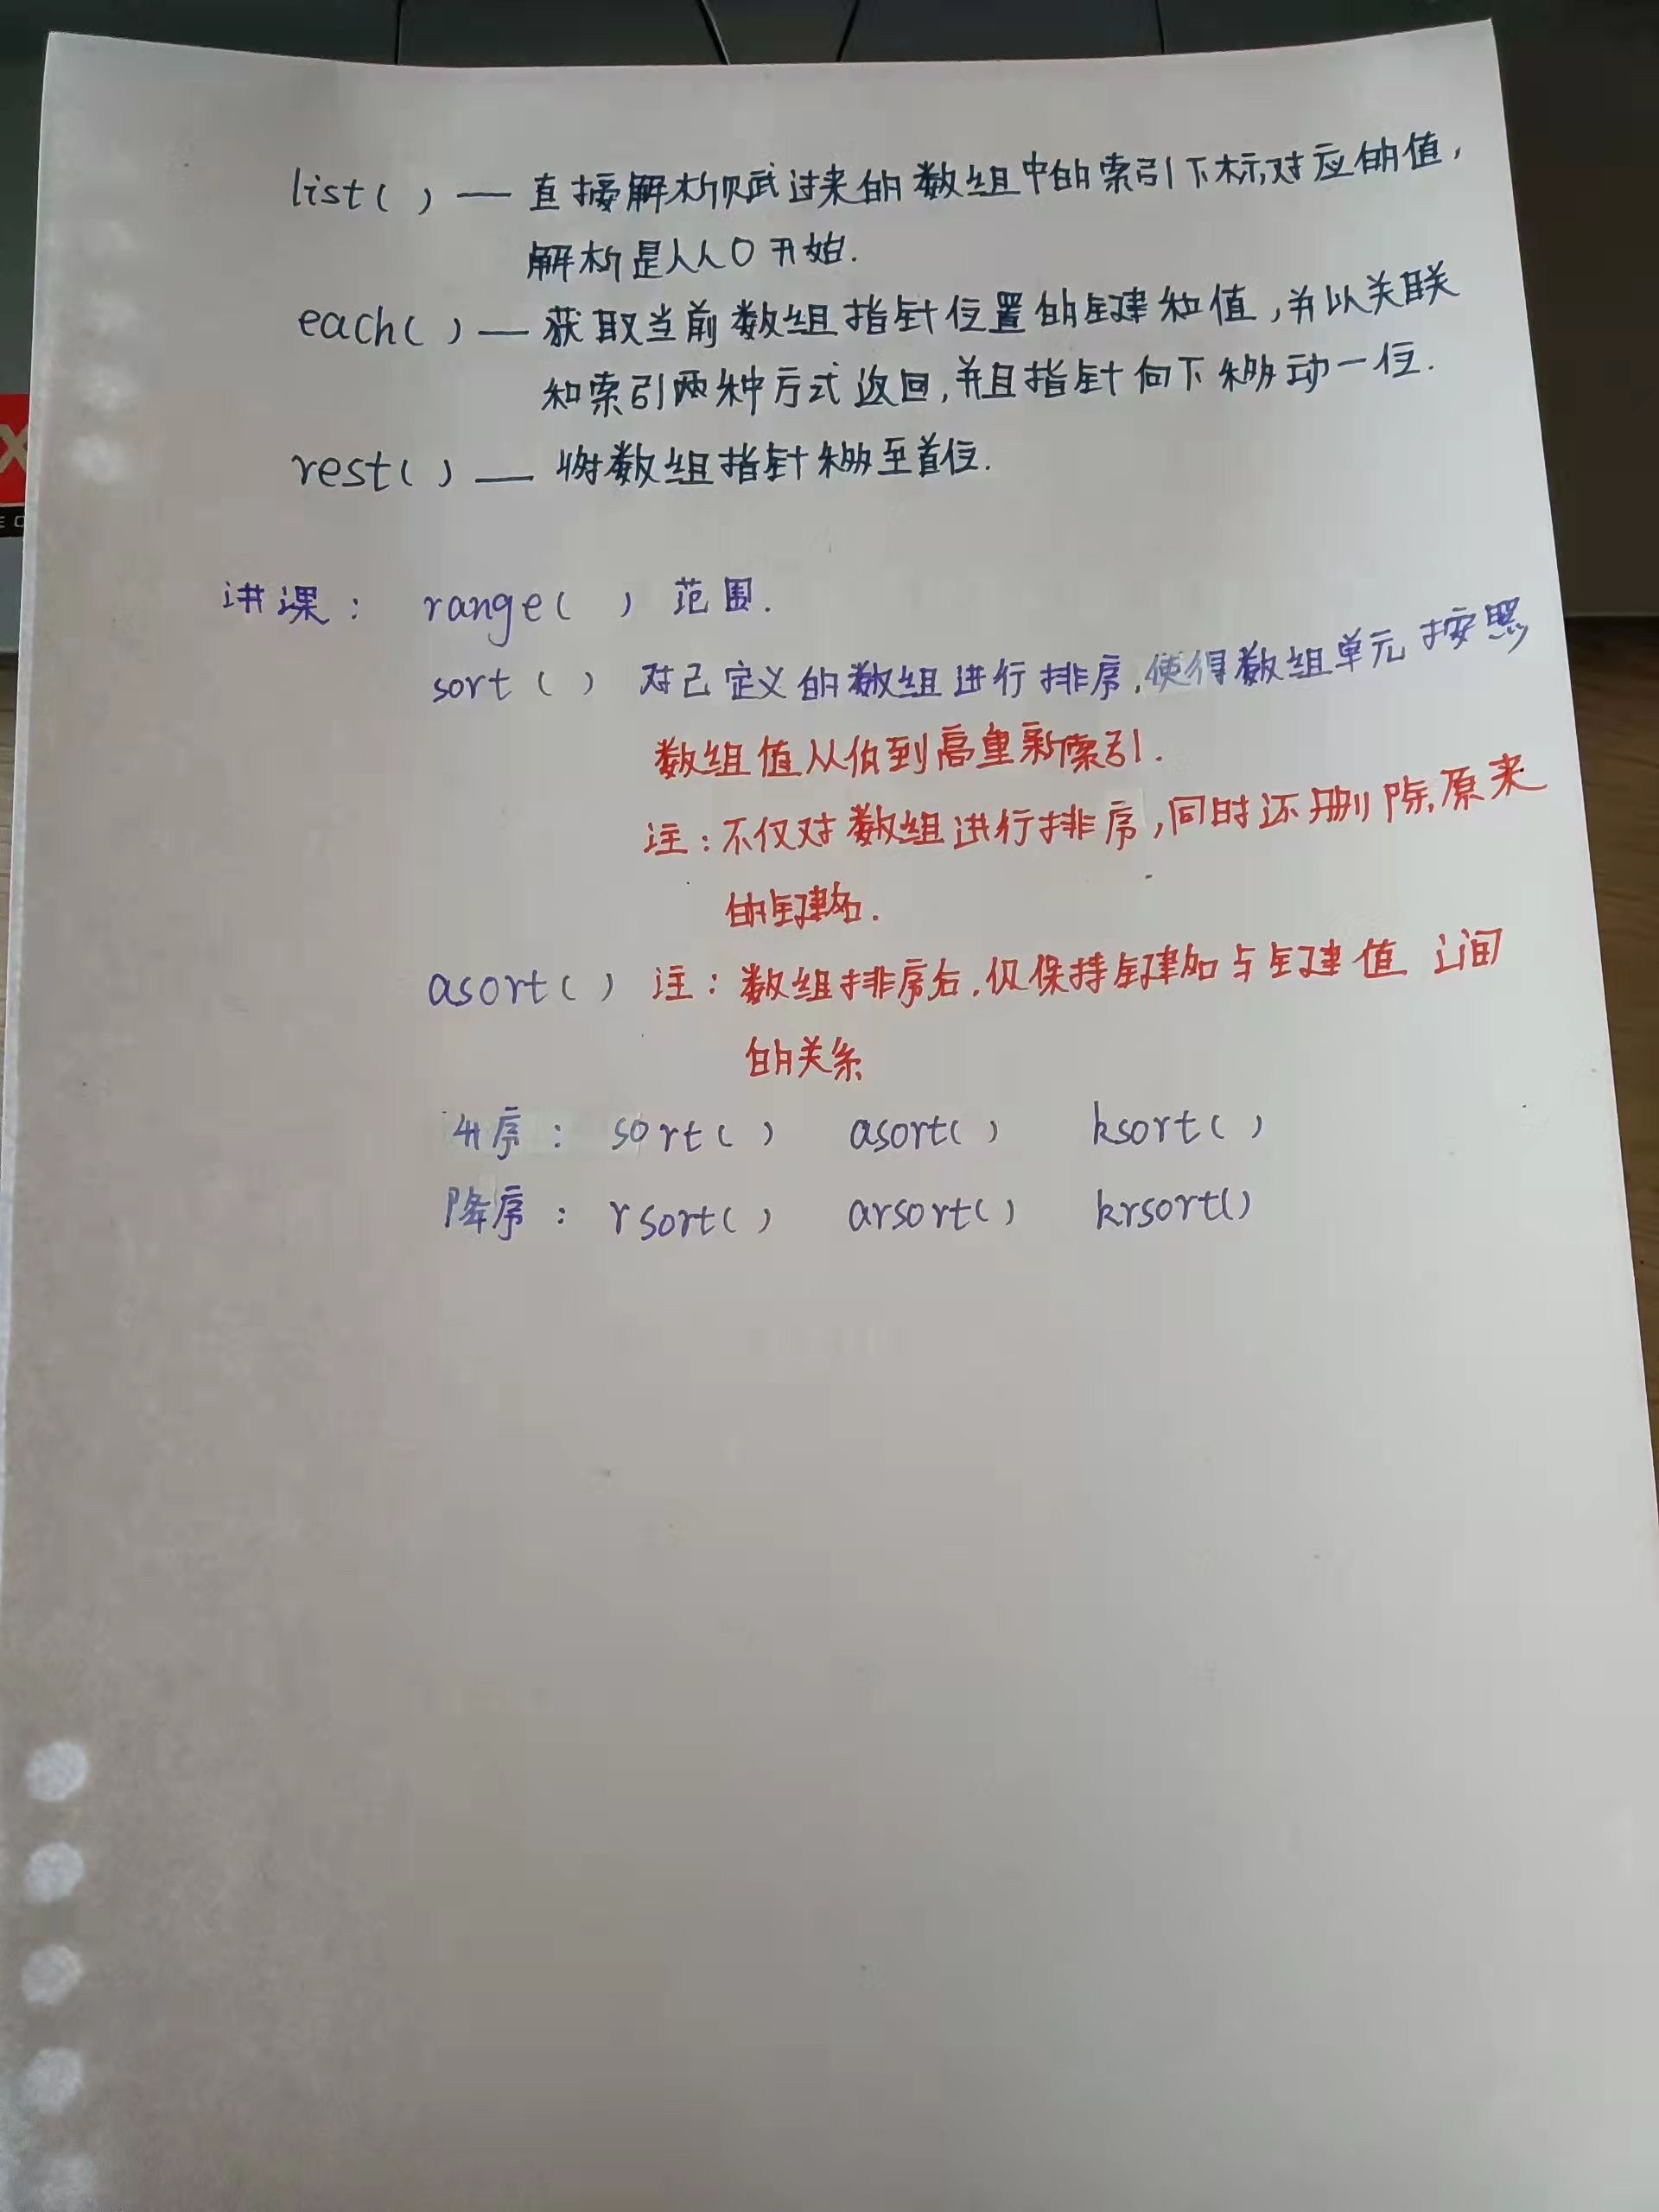 list( ) — 直接解析赋过来的数组中的索引下标对应的值，
解析是从0开始.
each( ) — 获取当前数组指针位置的键和值，并以关联
和索引两种方式返回，并且指针向下移动一位.
rest( ) — 将数组指针移至首位.
讲课： range( ) 范围.
sort ( ) 对已定义的数组进行排序，使得数组单元按照
数组值从低到高重新索引.
注：不仅对数组进行排序，同时还删除原来
的键名.
asort( ) 注：数组排序后，仅保持键名与键值 之间
的关系
升序： sort( ) asort( ) ksort( )
降序： rsort( ) arsort( ) krsort()